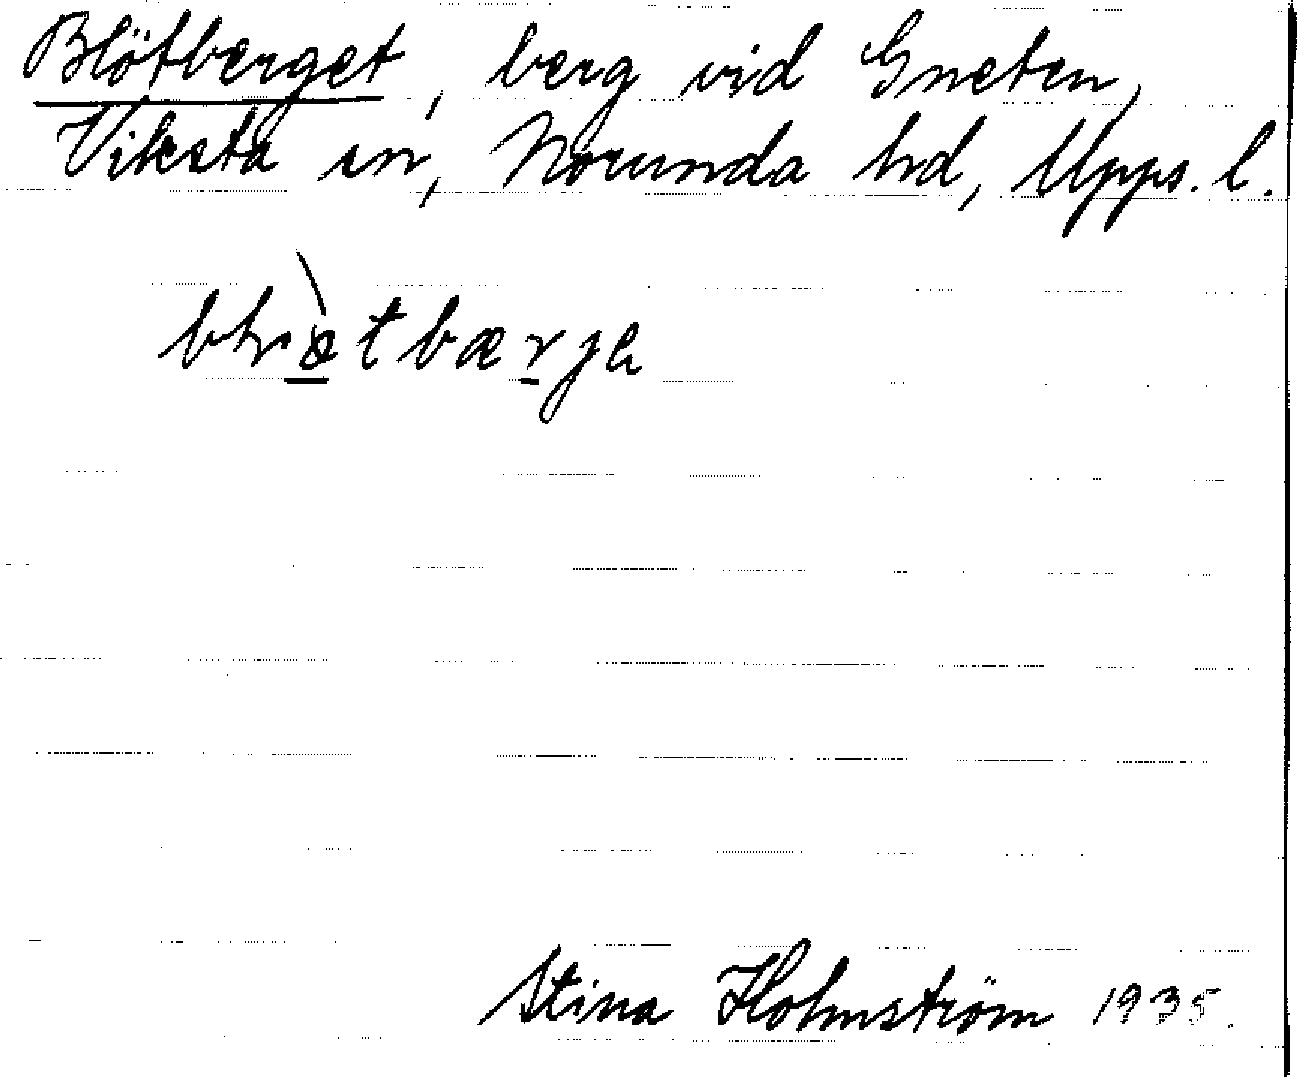 Blötberget, berg vid Gneten,
Viksta sn, Norunda hd, Upps. l.
Stina Holmström 1935.